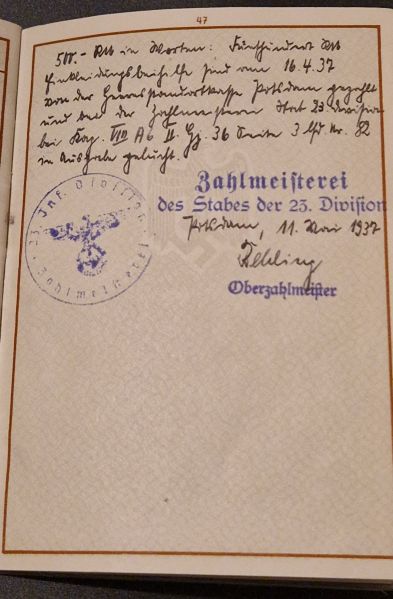 47
500.- RM in Worten: Fünfhundert RM
Einkleidungsbeihilfe sind am 16.4.37
von der Heeresstandortkasse Potsdam gezahlt
und bei der Zahlmeisterei Stab 23. Division
bei Kap. VIII A 6 Tit. 36 Seite 3 lfd. Nr. 82
in Ausgabe gebucht.
Zahlmeisterei
des Stabes der 23. Division
Potsdam, 11. Mai 1937
Oberzahlmeister
23. Inf. Division
Zahlmeisterei